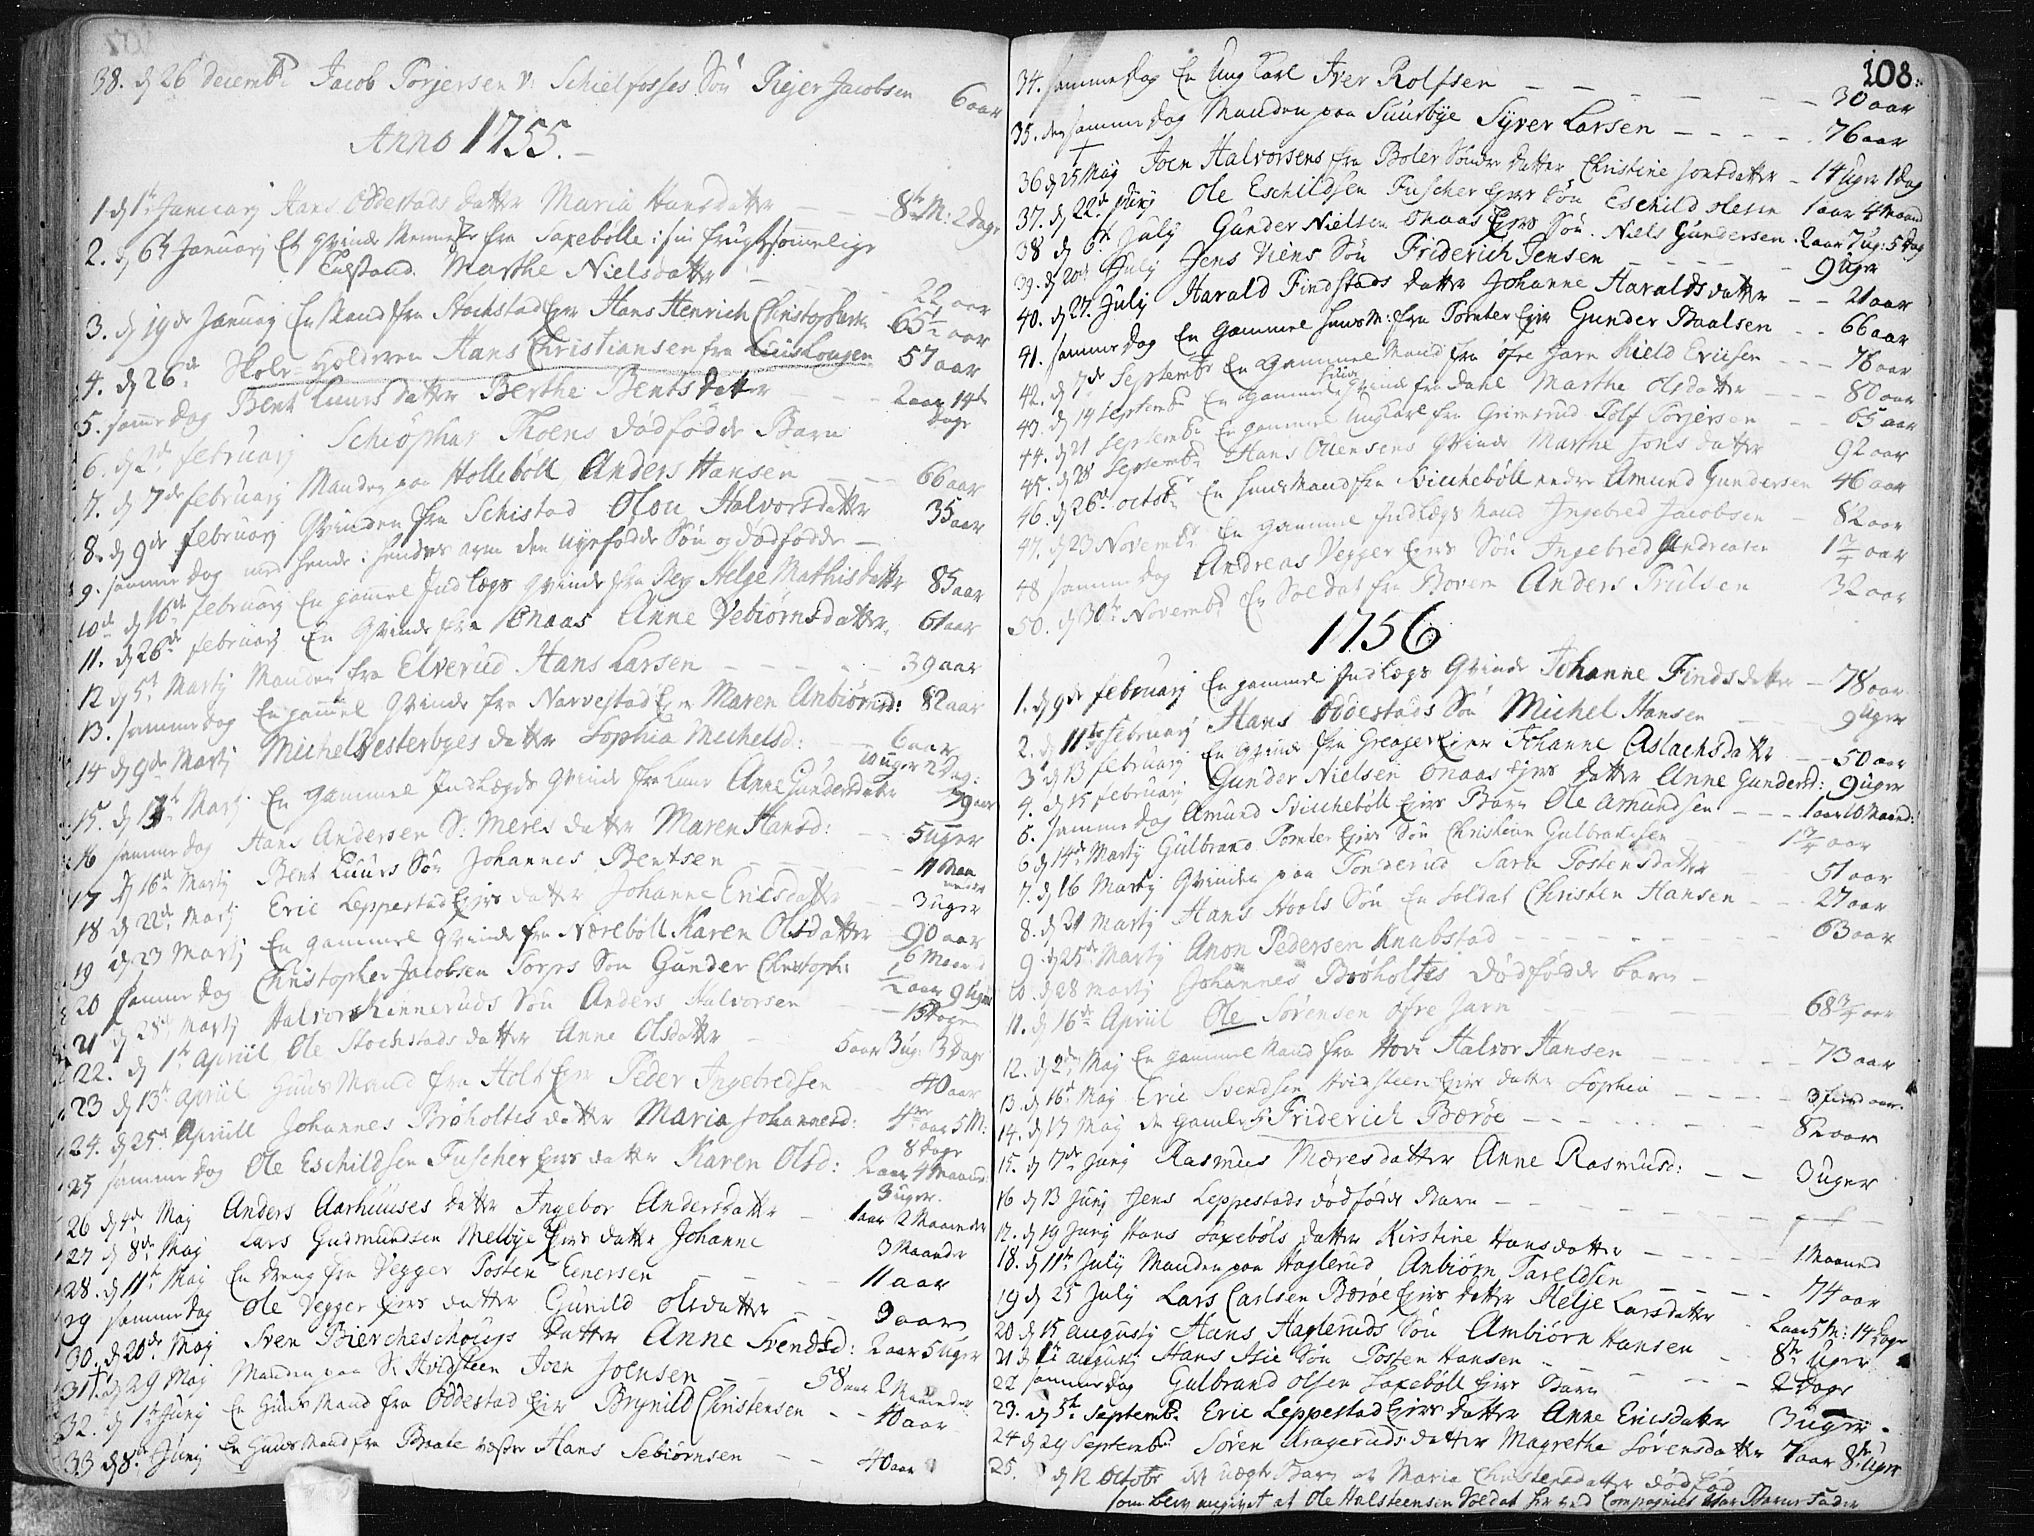 38. d 26 decembr Jacob Torjersen v: Schielfosses Søn Rejer Jacobsen 6 aar
Anno 1755.
1 d 1te Januarj Hans Oddestads datter Maria Hansdatter 8te M: 2 dage
2. d 6te Januarj Et Qvinde Menniske fra Saxebolle i sin frugtsommelige
Tilstand. Marthe Nielsdatter 22 aar
3. d 19de Januarj En Mand fra Stochstad Eier Hans Henrich Christophers 65½ aar
4. d 26de Skole-Holderen Hans Christiansen fra Huus Longen 57 aar
5. samme dag Bent Luurs datter Berthe Bentsdatter 2 aar 14te dage
6. d 2de februarj Schiøphar Thoens dødfødde Barn
7. d 7de februarj Manden paa Hollebøll Anders Hansen 66 aar
8. d 9de februarj Qvinden fra Schistad Olou Halvorsdatter 35 aar
9. samme dag med hende i hendes arm den nyefødde Søn og dødfødde
10de d 16de februarj En gamel Indlægs Qvinde fra Ney Helge Mathisdatter 85 aar
11. d 26de februarj En Qvinde fra Onaas Anne Vebiørnsdatter 61 aar
12 d 5te Martij Manden fra Elverud Hans Larsen 39 aar
13. samme dag En gammel Qvinde fra Narvestad Eier Maren Anbiørnsd: 82 aar
14 d 9de Martj Michel Vesterbyes datter Sophia Michelsd: 6 aar 10 uger 2 dag:
15. d 13te Martj En gammel Indlægds Qvinde fra Luur Anne Gundersdatter 79 aar
16 samme dag Hans Andersen S: Meres datter Maren Hansd: 5 uger
17 d 16de Martij Bent Luurs Søn Johannes Bentsen 11 Maaneder
18 d 22de Martj Eric Leppestad Ejers datter Johanne Ericsdatter 3 uger
19 d 23 Martj En gammel Qvinde fra Nærebøll Karen Olsdatter 90 aar
20 samme dag Christopher Jacobsen Torps Søn Gunder Christoph: 6 Maaned
21 d 28de Martj Halvor Kinneruds Søn Anders Halvorsen ½ aar 9 uger 15 dage
22. d 1te Apriil Ole Stochstads datter Anne Olsdatter 5 aar 3 ug: 3 dage
23 d 13te Apriil Huus Mand fra Holt Eier Peder Ingebredsen 40 aar
24. d 25de Apriill Johannes Brøholtes datter Maria Johannesd: 4re aar 5 M: 8 dage
25 samme dag Ole Eschildsen Fuscher Ejers datter Karen Olsd: 2 aar 4 Maaned: 3 uger.
26 d 4de Maj Anders Aarhuuses datter Ingebor Andersdatter 1 aar 2 Maaneder
27 d 8de Maj Lars Gudmundsen Melbye Ejers datter Johanne 3 Maande
28. d 11te Maj En dreng fra Vegger Tosten Einersen 11 aar
29 samme dag Ole Vegger Ejers datter Gunild Olsdatter 9 aar
30. d 20de Maj Sven Biercheschougs datter Anne Svendsd: 2 aar 5 uger
31. d 29 Maj Manden paa S: Hvidsteen Joen Joensen 58 aar 2 Maaneder
32. d 1te Junj En Huus Mand fra Oddestad Eier Brynild Christensen 40 aar
33 d 8de Junj En Huus Mand fra Braate vasser Hans Sebiørnsen 40 aar
108.
34. samme dag En Ung Carl Iver Rolfsen 30 aar
35. den samme dag Manden paa Suursbye Syver Larsen 76 aar
36 d 25 Maj Joen Halvorsens fra Boler Søndre datter Christine Jonsdatter 14 uger 1 dag
37. d 22de Junj Ole Eschildsen Fuscher Ejers Søn Eschild Olesen 1 aar 4 Maaned
38 d 6te July Gunder Nielsen Onaas Ejers Søn Niels Gundersen 2 aar 7 ug: 5 dag
39. d 20de July Jens Viens Søn Friderich Jensen 9 uger
40. d 27. July Harald Findstads datter Johanne Haraldsdatter 21 aar
41. samme dag En gammel huus M: fra Tomter Eier Gunder Paalsen 66 aar
42. d 7de Septembr En gammel Mand fra øfre Jarn Kield Ericsen 76 aar
43. d 14 Septembr En gammel Qvinde fra Dahl Marthe Olsdatter 80 aar
44. d 21 Septembr En gammel Ung Carl fra Grimsrud Tolf Torjersen 65 aar
45. d 28 Septembr Hans Ollensens Qvinde Marthe Jonsdatter 92 aar
46. d 26de octobr En huus Mand fra Svichebøll nedre Amund Gundersen 46 aar
47. d 23 Novembr En gammel Indlægs Mand Ingebred Jacobsen 82 aar
48 samme dag Andreas Vegger Ejers Søn Ingebred Andreasen 1¾ aar
50. d 30te Novembr En Soldat fra Boven Anders Trulsen 32 aar
1756
1. d 9de februarj En gammel Indlægs Qvinde Johanne Findsdatter 78 aar
2. d 11te Februarj Hans Oddestads Søn Michel Hansen 9 uger
3 d 13 februarj En Qvinde fra Greager Eier Johanne Aslachsdatter 50 aar
4. d 15 februarj Gunder Nielsen Onaas Ejers datter Anne Gundersd: 9 uger
5. samme dag Amund Svichebøll Ejers Barn Ole Amundsen 1 aar 10 Maand:
6 d 14de Martij Gulbrand Tomter Ejers Søn Christian Gulbrandsen 1¾ aar
7. d 16 Martij Qvinden paa Tonderud Sara Tostensdatter 51 aar
8. d 21 Martij Hans Hools Søn En Soldat Christen Hansen 27 aar
9 d 25de Martij Anon Pedersen Knabstad 63 aar
10. d 28 Martij Johannes Brøholtes dødfødde barn
11. d 16de Apriil Ole Sørensen øfre Jarn 68¾ aar
12. d 2den Maj En gammel Mand fra Hovi Halvor Hansen 73 aar
13. d 16de Maj Eric Svendsen Hvidsteen Ejers datter Sophia 3 fierd aar.
14. d 17 Maj den gamle Sr Friderich Bærøe 82 aar
15. d 7de Junj Rasmus Mæres datter Anne Rasmusd: 3 uger
16 d 13 Junj Jens Leppestads dødfødde Barn
17. d 19 Junj Hans Saxebøls datter Kirstine Hansdatter 1 Maaned
18. d 11te July Manden paa Haglerud Anbiørn Tareldsen 74 aar
19 d 25 July Lars Carlsen Bærøe Ejers datter Helje Larsdatter 2 aar 5 M: 14 dage
20 d 15 augustj Hans Haglerud Søn Ambiørn Hansen 8te uger
21 d augustj Hans Hsie Søn Tosten Hansen
22 samme dag Gulbrand Olsen Saxebøll Ejers Barn 2 dage
23. d 5te Septembr Eric Leppestad Ejers datter Anne Ericsdatter 3 uger
24 d 29 Septembr Søren Krageruds datter Magrethe Sørensdatter 7 aar 8te uger
25. d 12 Octobr Et uægte Barn af Maria Christensdatter dødfød
som blev angivet at Ole Halsteensen Soldat her ved Compagniet var Barne Fader